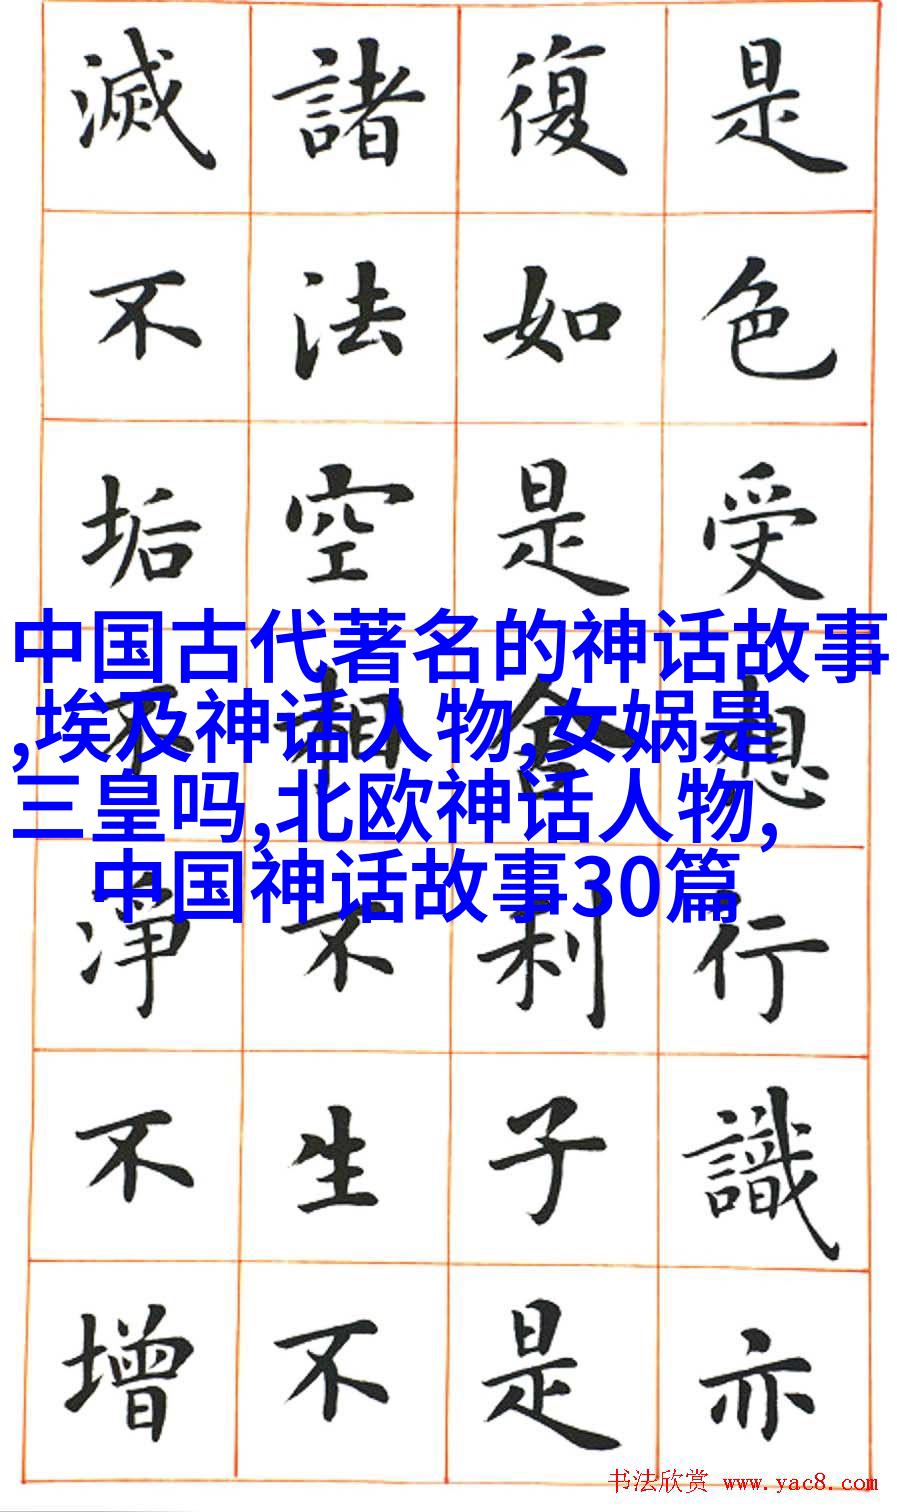 是色受想行識亦
復如是舍利子是
諸法空相不生不
滅不垢不淨不增
中国古代著名的神话故事
,埃及神话人物,女娲是
三皇吗,北欧神话人物,
中国神话故事30篇
书法欣赏 www.yac8.com